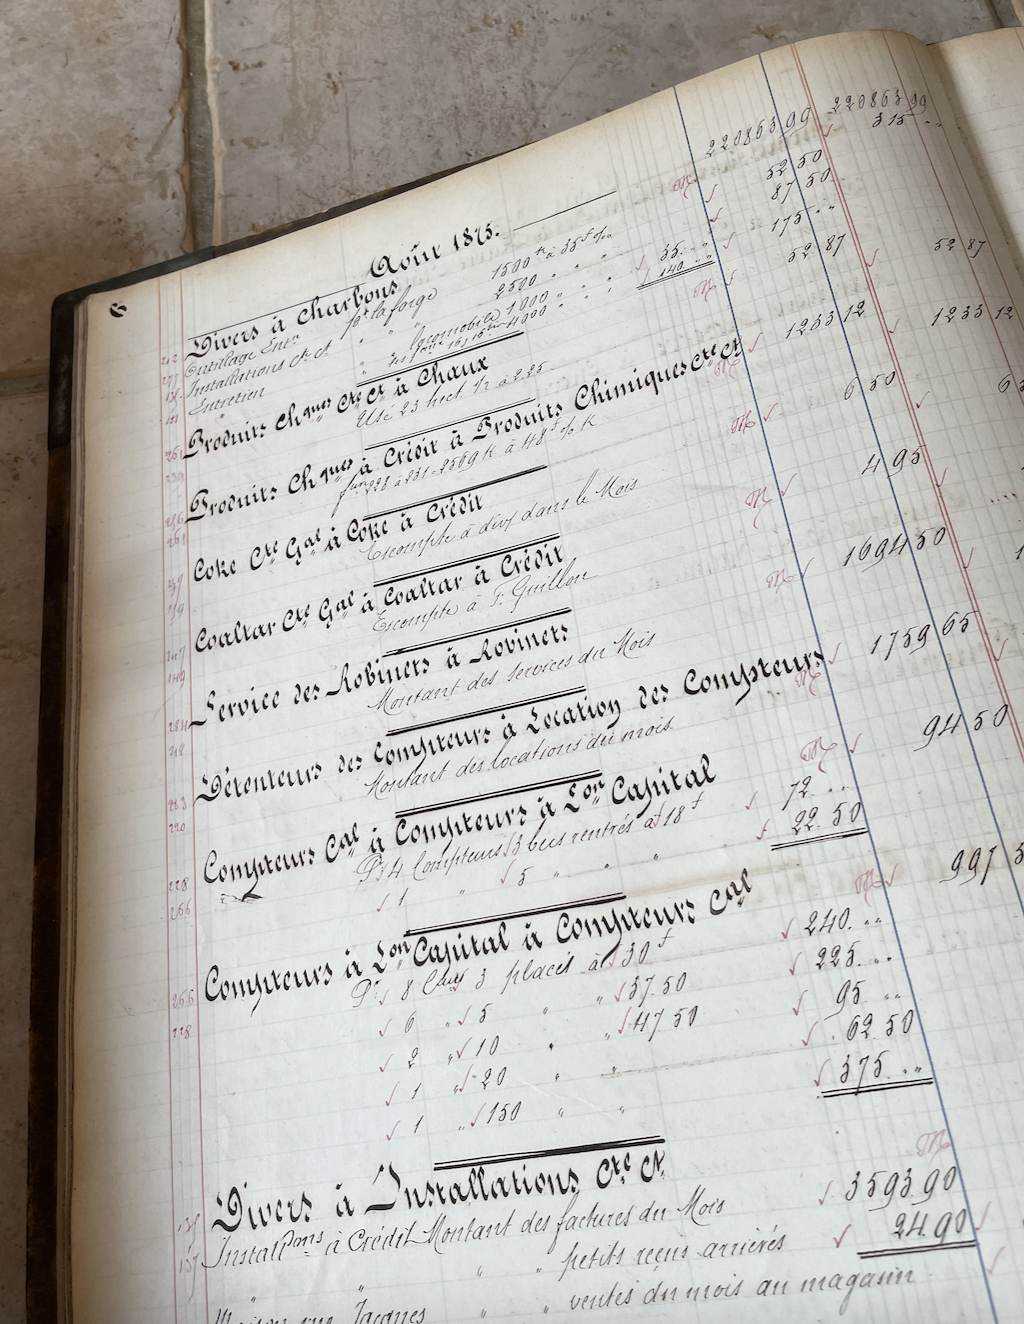 6
Août 1875.
220863 99 220863 99
Divers à Charbons 315 ..
Outillage Entn pr la forge 1500 k à 35f %o 52 50
Installations Cte Ct " " 2500 " " " 87 50
Entretien " locomobile 1000 " " 35 .. 175 ..
4000 " " 140 ..
Produits Chques Cte Ct à Chaux 52 87 52 87
Usé 23 hect. 1/2 à 2.25
Produits Chques à Crédit à Produits Chimiques Cte Ct 1233 12 1233 12
228 à 231 - 2569 k à 48f % k
Coke Cte Gal à Coke à Crédit 6 50
Escompte à divs dans le Mois
Coaltar Cte Gal à Coaltar à Crédit 4 95
Escompte à F. Guillon
Service des Robinets à Robinets 1694 50
Montant des services du Mois
Détenteurs des Compteurs à Location des Compteurs 1759 65
Montant des locations du mois
Compteurs Cal à Compteurs à Lon Capital 94 50
Pr 4 Compteurs 3 becs rentrés à 18f 72 ..
1 " 5 " " " 22.50
Compteurs à Lon Capital à Compteurs Cal 997 5
Pr 8 Cters 3 placés à 30f 240. ..
6 " 5 " " 37.50 225. ..
2 " 10 " " 47.50 95 ..
1 " 20 " " 62.50
1 " 150 " " 375 ..
Divers à Installations Cte Ct
Installons à Crédit Montant des factures du Mois 3593.90
" " " petits reçus arriérés 24.90
Maison rue Jacques " " ventes du mois au magasin